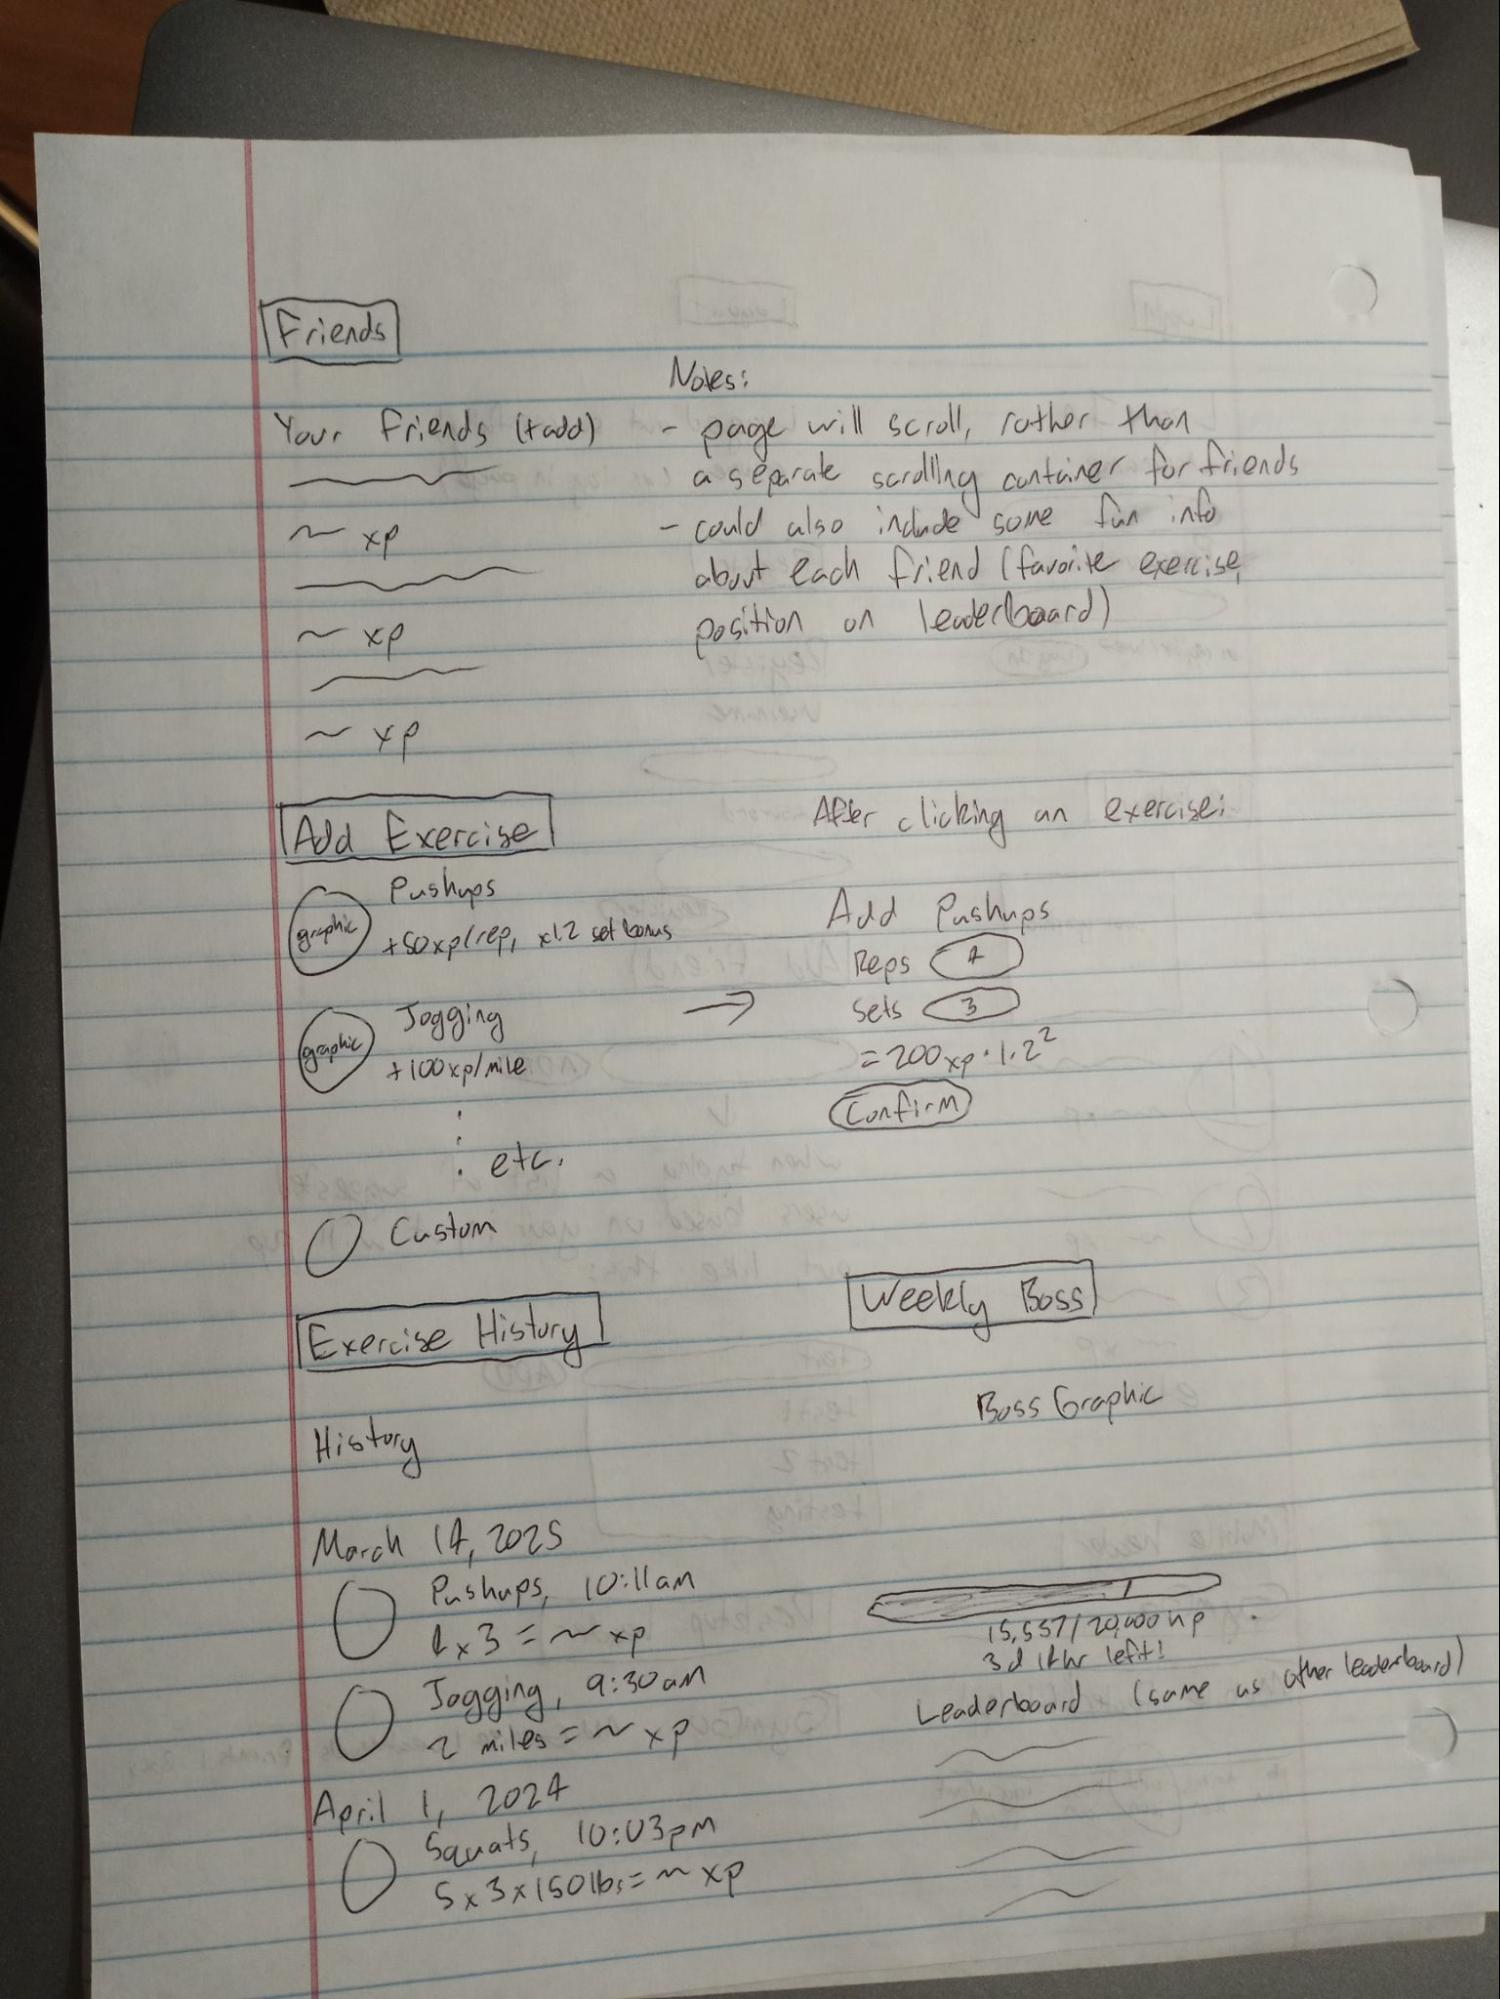 Friends
Your Friends (+add)
~ xp
~ xp
~ xp
Notes:
- page will scroll, rather than
a separate scrolling container for friends
- could also include some fun info
about each friend (favorite exercise,
position on leaderboard)
Add Exercise
graphic
Pushups
+50xp/rep, x1.2 set bonus
graphic
Jogging
+100xp/mile
etc.
Custom
After clicking an exercise:
→
Add Pushups
Reps 4
Sets 3
= 200xp · 1.2²
Confirm
Exercise History
History
March 14, 2025
Pushups, 10:11am
x 3 = ~ xp
Jogging, 9:30am
2 miles = ~ xp
April 1, 2024
Squats, 10:03pm
5 x 3 x 150lbs = ~ xp
Weekly Boss
Boss Graphic
15,557/20,000 hp
3d 14hr left!
Leaderboard (same as other leaderboard)